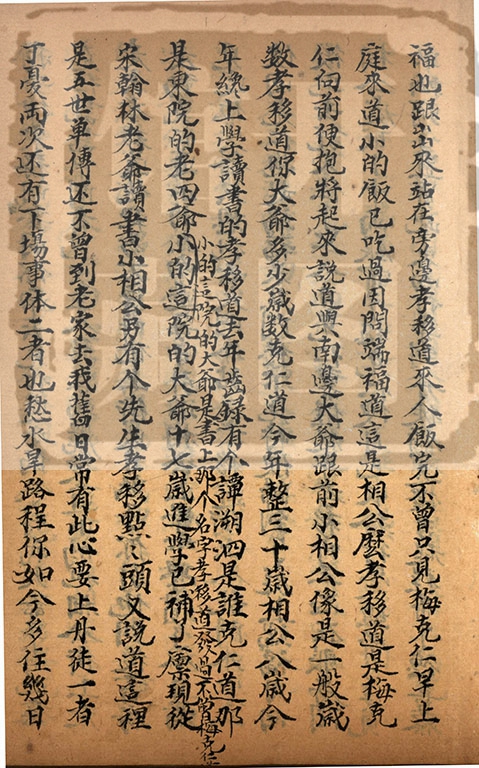 福也跟出來站在旁邊孝移道來人飯完不曾只見梅克仁早上
庭來道小的飯已吃過因問端福道這是相公麽孝移道是梅克
仁向前便抱將起來說道與南邊大爺跟前小相公像是一般歲
数孝移道你大爺多少歲数克仁道今年整三十歲相公八歲今
年纔上學讀書的孝移道去年齒錄有个譚溯泗是誰克仁道那
是東院的老四爺小的這院的大爺十七歲進學已補了廪現從
小的這院的大爺是書上那个名字孝移道發過不曾梅克仁道
宋翰林老爺讀書小相公另有个先生孝移點〻頭又說道這裡
是五世单傳还不曾到老家去我舊日常有此心要上丹徒一者
丁憂兩次还有下場事体二者也愁水旱路程你如今多住幾日